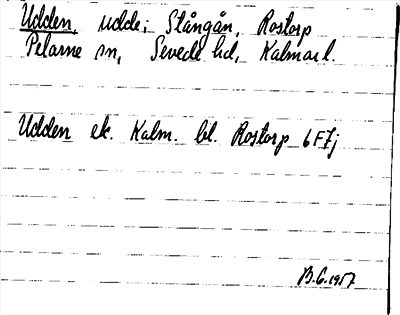 Udden, udde; Stångån, Rostorp
Pelarne sn, Sevede hd, Kalmar l.
Udden ek. Kalm. bl. Rostorp 6F7j
B.G. 1957